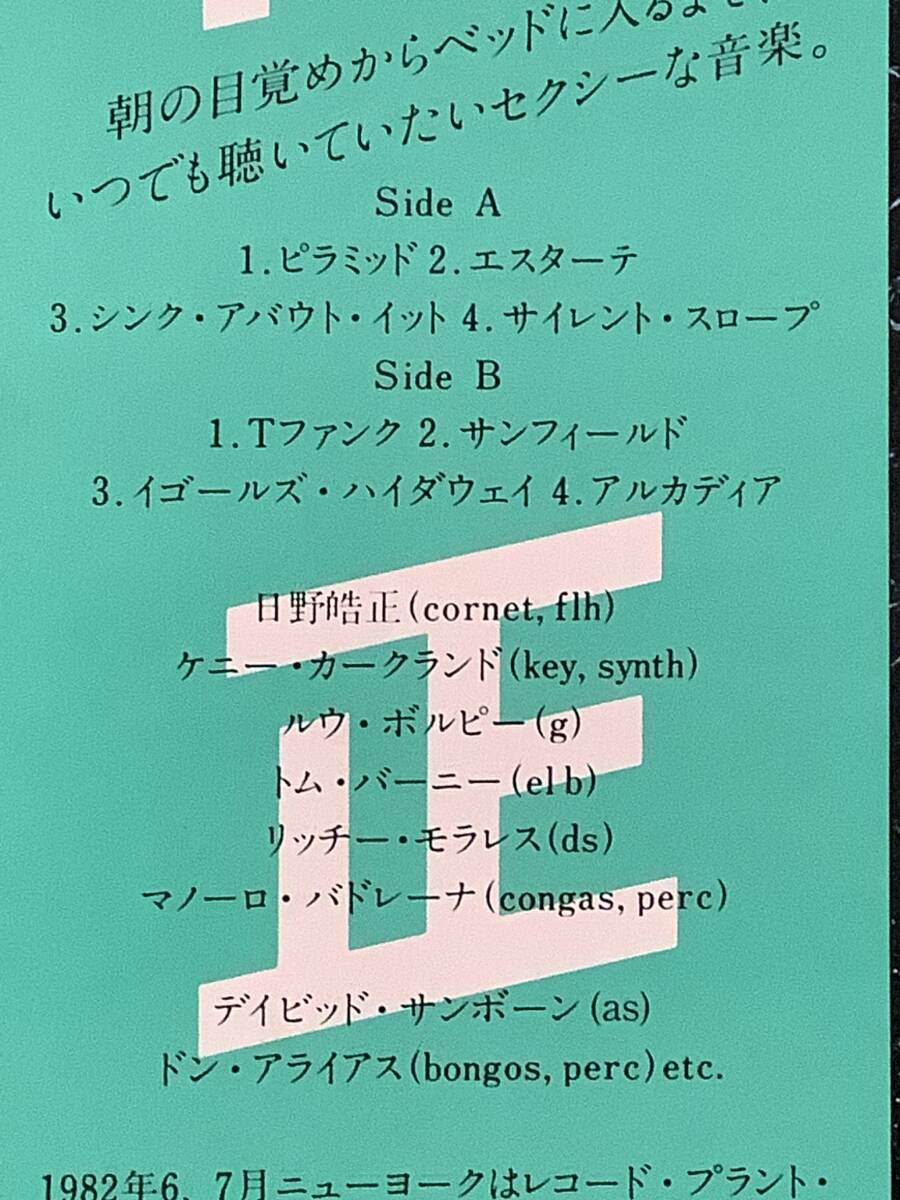 朝の目覚めからベッドに入るまで
いつでも聴いていたいセクシーな音楽。
Side A
1.ピラミッド 2.エスターテ
3.シンク・アバウト・イット 4.サイレント・スロープ
Side B
1.Tファンク 2.サンフィールド
3.イゴールズ・ハイダウェイ 4.アルカディア
正
日野皓正(cornet, flh)
ケニー・カークランド(key, synth)
ルウ・ボルピー(g)
トム・バーニー(el b)
リッチー・モラレス(ds)
マノーロ・バドレーナ(congas, perc)
デイビッド・サンボーン(as)
ドン・アライアス(bongos, perc)etc.
1982年6、7月ニューヨークはレコード・プラント・